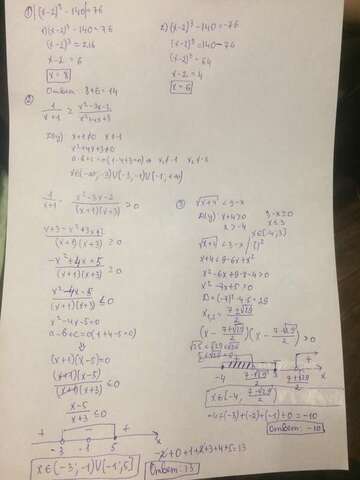 ① |(x-2)³-140|=76
1) (x-2)³-140=76
(x-2)³=216
x-2=6
x=8
2) (x-2)³-140=-76
(x-2)³=140-76
(x-2)³=64
x-2=4
x=6
Ответ: 8+6=14
②
1/(x+1) ≥ (x²-3x-2)/(x²+4x+3)
x+1≠0 x≠-1
x²+4x+3≠0
a-b+c=0(1-4+3=0) ⇒ x₁≠-1 x₂≠-3
x∈(-∞,-3)∪(-3,-1)∪(-1,+∞)
1/(x+1) - (x²-3x-2)/((x+1)(x+3)) ≥0
(x+3-x²+3x+2)/((x+1)(x+3)) ≥0
(-x²+4x+5)/((x+1)(x+3)) ≥0
(x²-4x-5)/((x+1)(x+3)) ≤0
x²-4x-5=0
a-b+c=0(1+4-5=0)
⇓
(x+1)(x-5)=0
((x+1)(x-5))/((x+1)(x+3)) ≤0
(x-5)/(x+3) ≤0
+ - +
-3 -1 5 x
x∈(-3;-1)∪(-1;5]
-2+0+1+2+3+4+5=13
Ответ: 13
③ √(x+4) <3-x
x+4≥0
x≥-4
3-x≥0
x≤3
x∈[-4;3]
√(x+4) <3-x |()²
x+4<9-6x+x²
x²-6x+9-x-4>0
x²-7x+5>0
D=(-7)²-4·5=29
x₁,₂=(7±√29)/2
(x-(7+√29)/2)(x-(7-√29)/2)>0
-4 (7-√29)/2 3 (7+√29)/2 x
x∈[-4,(7-√29)/2)
-4+(-3)+(-2)+(-1)+0=-10
Ответ: -10